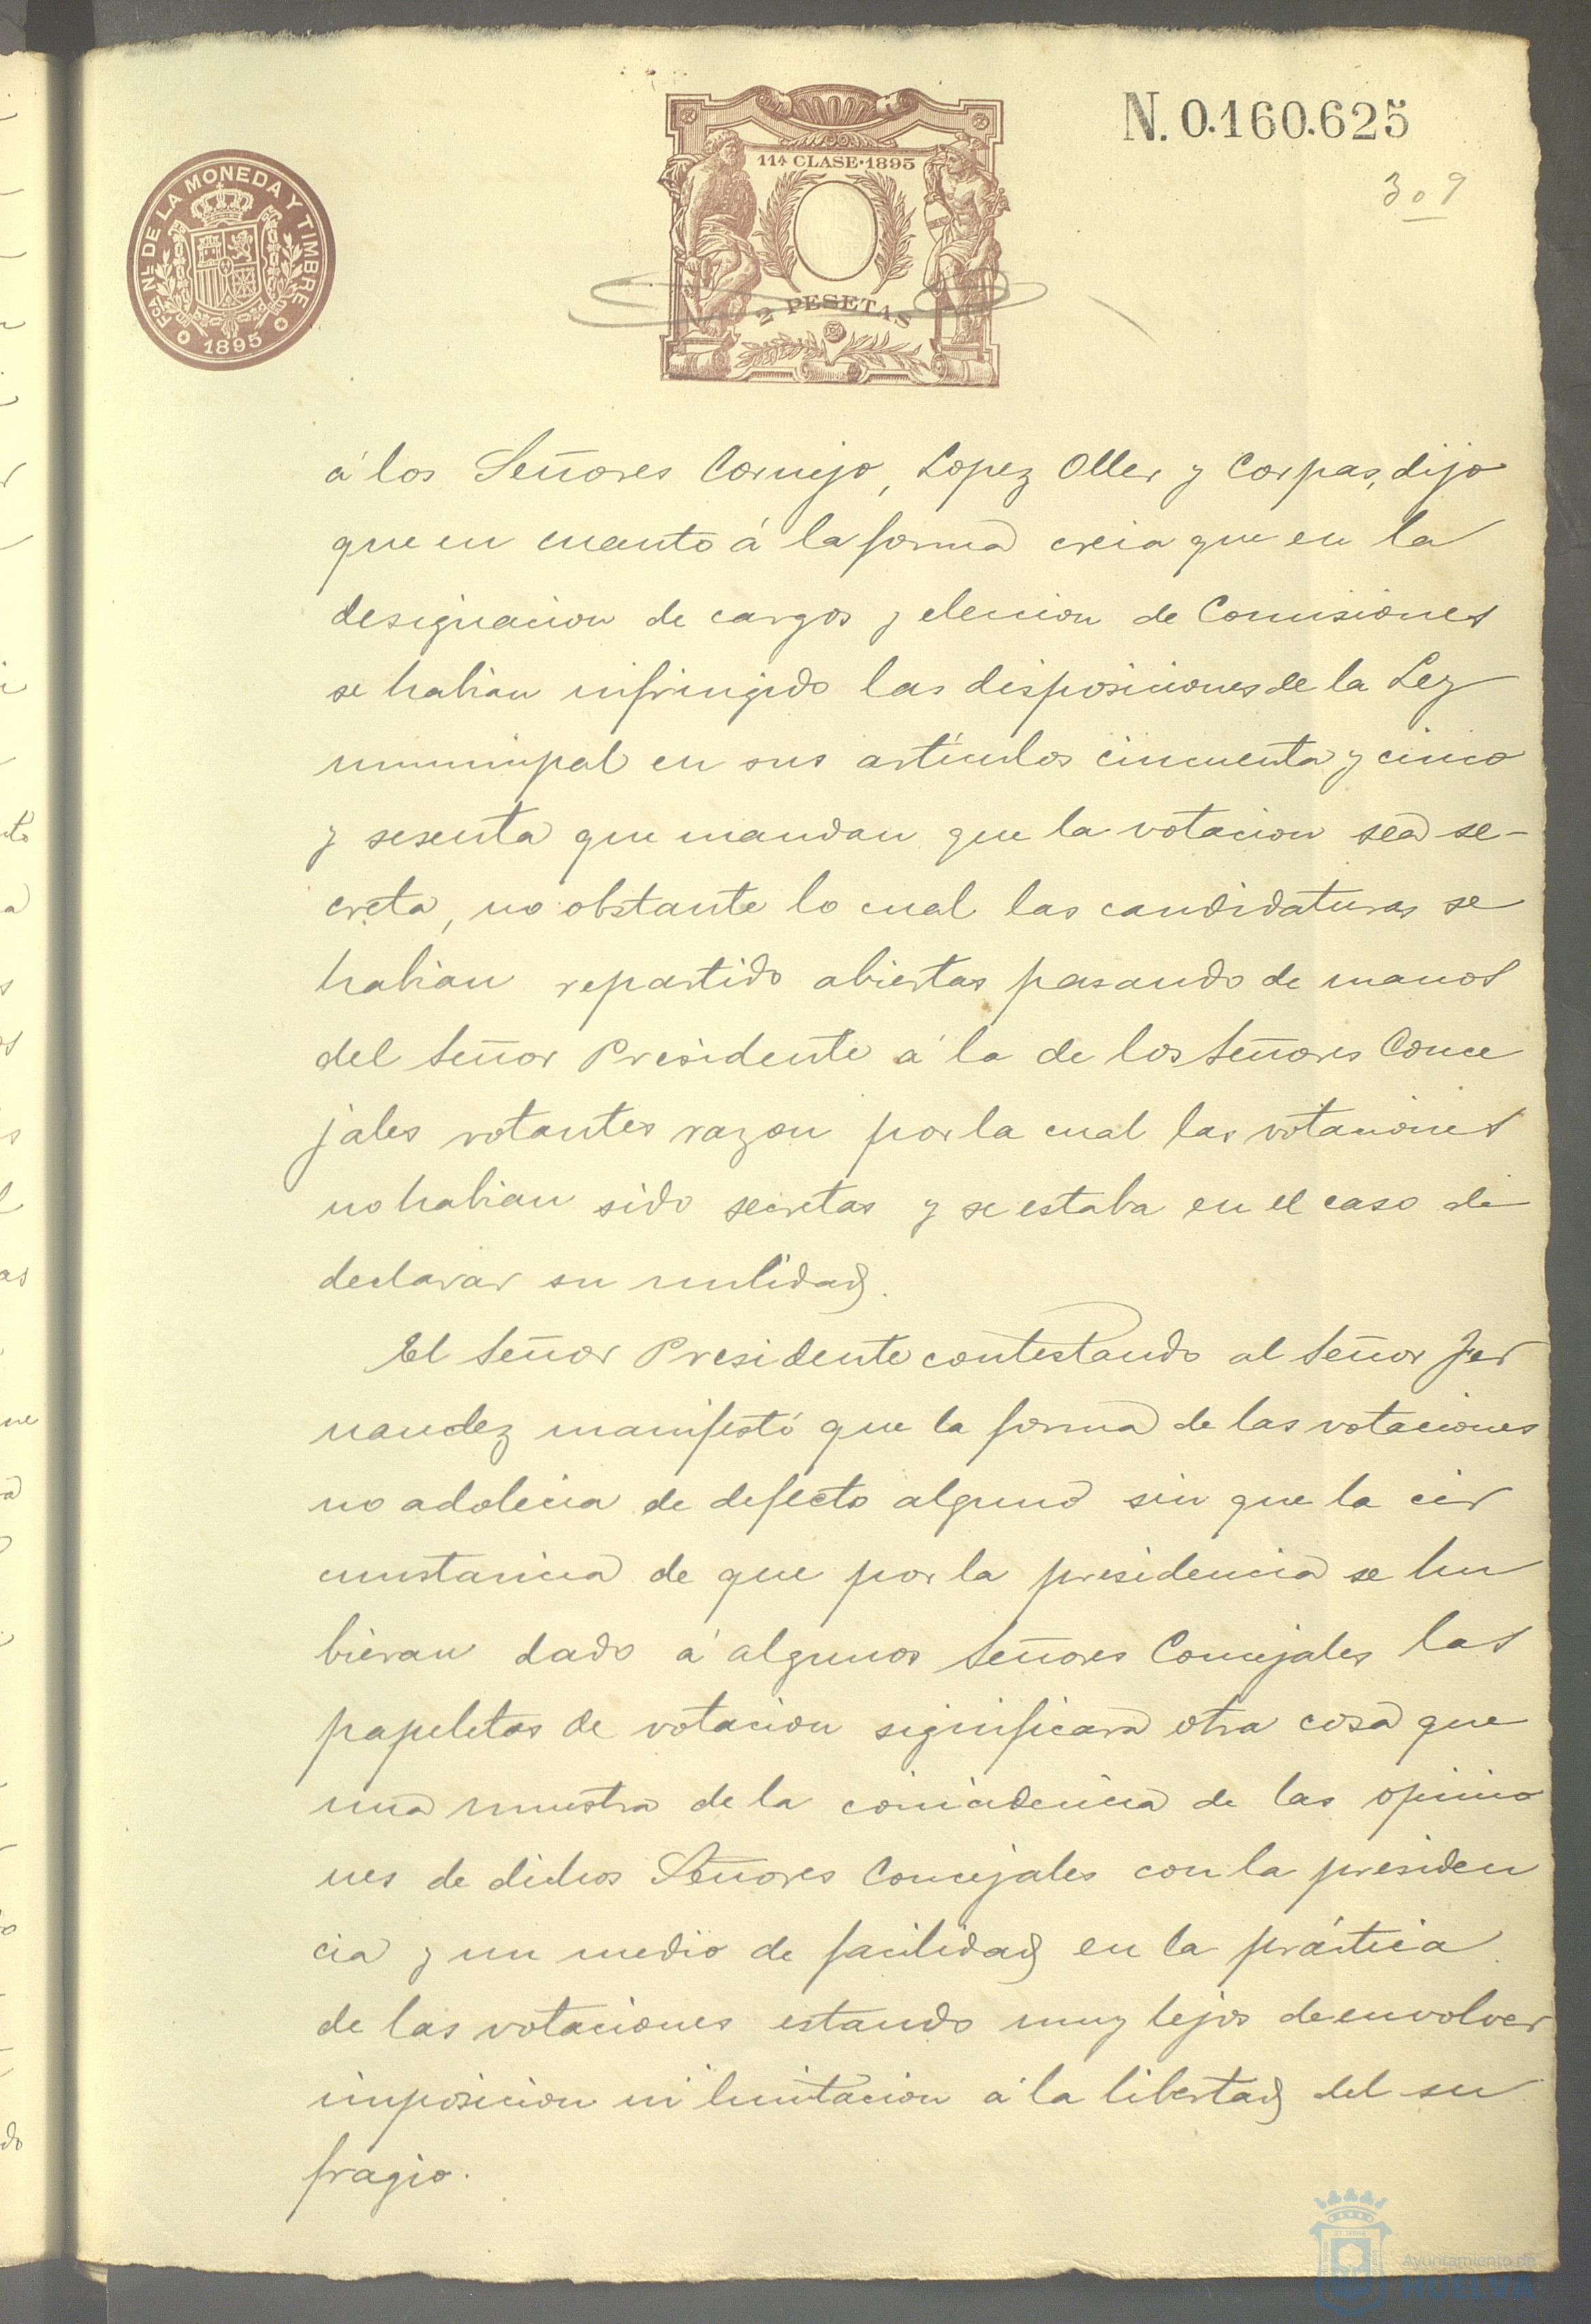 N. 0.160.625
309
11ª CLASE·1895
FCA. NL. DE LA MONEDA Y TIMBRE
1895
2 PESETAS
á los Señores Cornejo, Lopez Oller y Corpas, dijo
que en cuanto á la forma creia que en la
designacion de cargos y eleccion de Comisiones
se habian infringido las disposiciones de la Ley
municipal en sus artículos cincuenta y cinco
y sesenta que mandan que la votacion sea se-
creta, no obstante lo cual las candidaturas se
habian repartido abiertas pasando de manos
del Señor Presidente á la de los Señores Conce
jales votantes razon por la cual las votaciones
no habian sido secretas y se estaba en el caso de
declarar su nulidad.
El Señor Presidente contestando al Señor Fer
nandez manifestó que la forma de las votaciones
no adolecia de defecto alguno sin que la cir
cunstancia de que por la presidencia se hu
bieran dado á algunos Señores Concejales las
papeletas de votacion significara otra cosa que
una muestra de la coincidencia de las opinio
nes de dichos Señores Concejales con la presiden
cia y un medio de facilidad en la práctica
de las votaciones estando muy lejos de envolver
imposicion ni limitacion á la libertad del su
fragio.
Ayuntamiento de
HUELVA